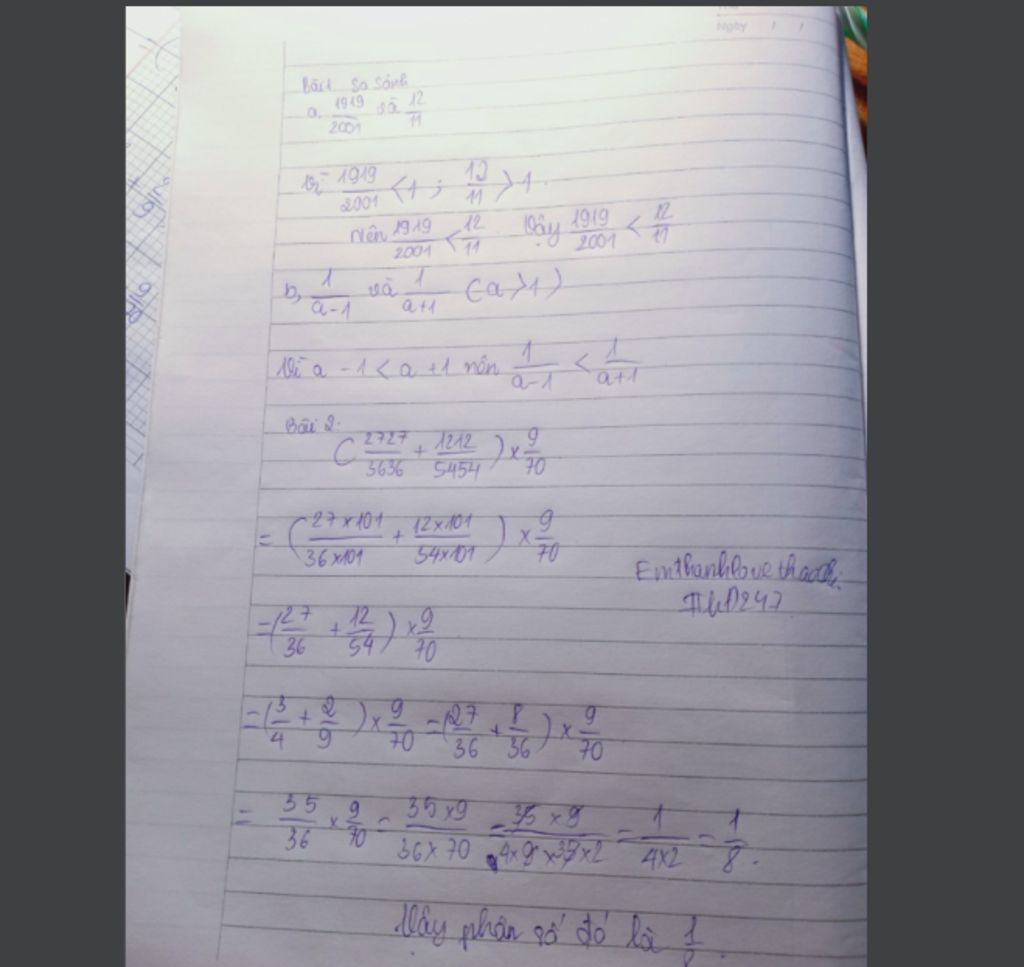 Ngày / /
Bài 1 So sánh
a. 1919/2001 và 12/11
Vì 1919/2001 < 1 ; 12/11 > 1.
Nên 1919/2001 < 12/11 Vậy 1919/2001 < 12/11
b, 1/a-1 và 1/a+1 (a > 1)
Vì a - 1 < a + 1 nên 1/a-1 < 1/a+1
Bài 2:
(2727/3636 + 1212/5454) × 9/70
= (27×101/36×101 + 12×101/54×101) × 9/70
Emthanhlovethaochi
= (27/36 + 12/54) × 9/70
= (3/4 + 2/9) × 9/70 = (27/36 + 8/36) × 9/70
= 35/36 × 9/70 = 35×9/36×70 = 35×9/4×9×35×2 = 1/4×2 = 1/8.
Vậy phân số đó là 1/8